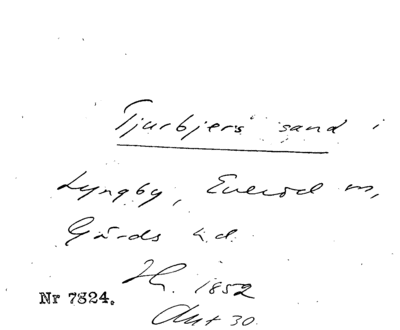 Tjurbjers sand i
Lyngby, Everöd m,
Gärds h.d.
1852
Nr 7824.
Akt 30.